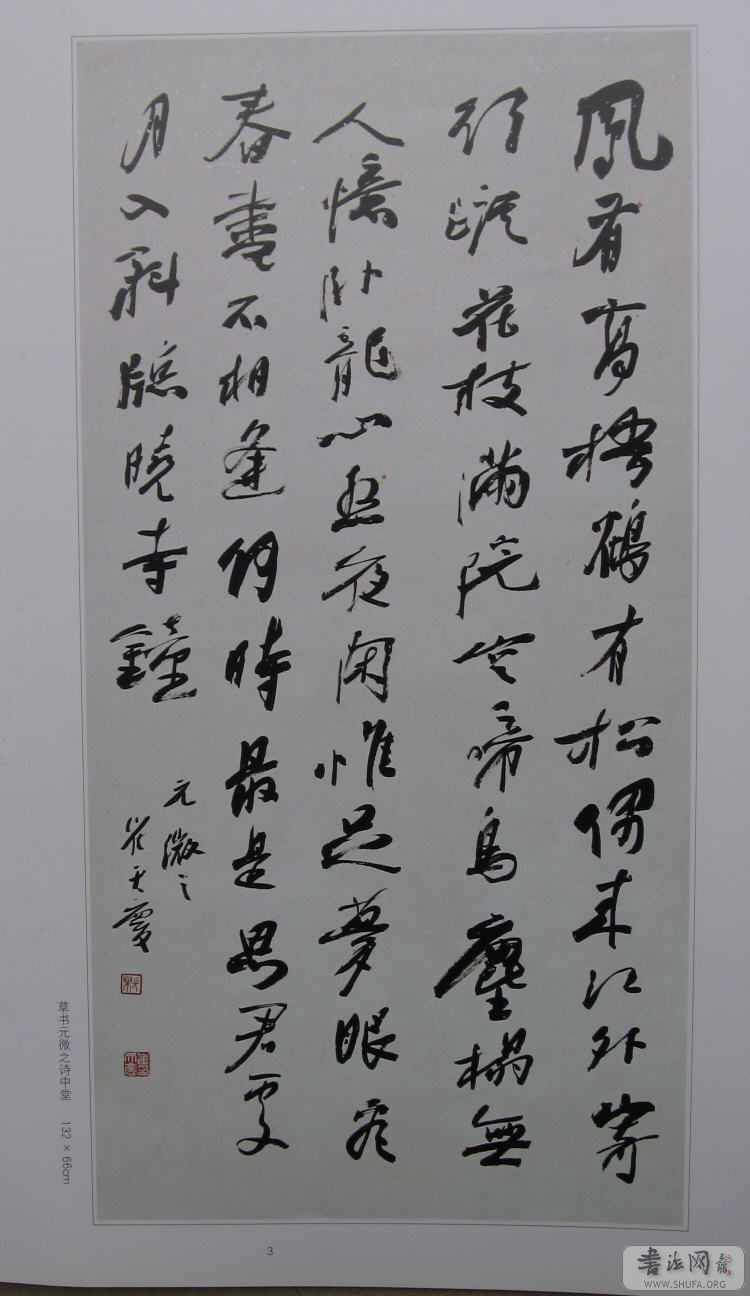 鳳有高梧鶴有松偶来江外寄
行蹤花枝滿院空啼鳥塵榻無
人憶卧龍心想夜閑惟足夢眼看
春盡不相逢何時最是思君處
月入斜牕曉寺鐘
元微之
草书元微之诗中堂 132×66cm
3
書法网
WWW.SHUFA.ORG